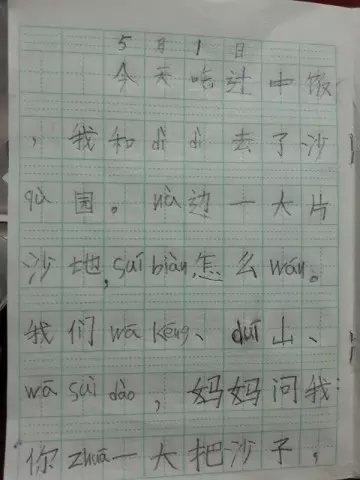 5月1日
今天吃过中饭
，我和dì dì去了沙
qù 围。nà边一大片
沙地，suī biàn怎么wán。
我们wā kēng、duī山、
wā suì dào，妈妈问我：
你zhuā一大把沙子，